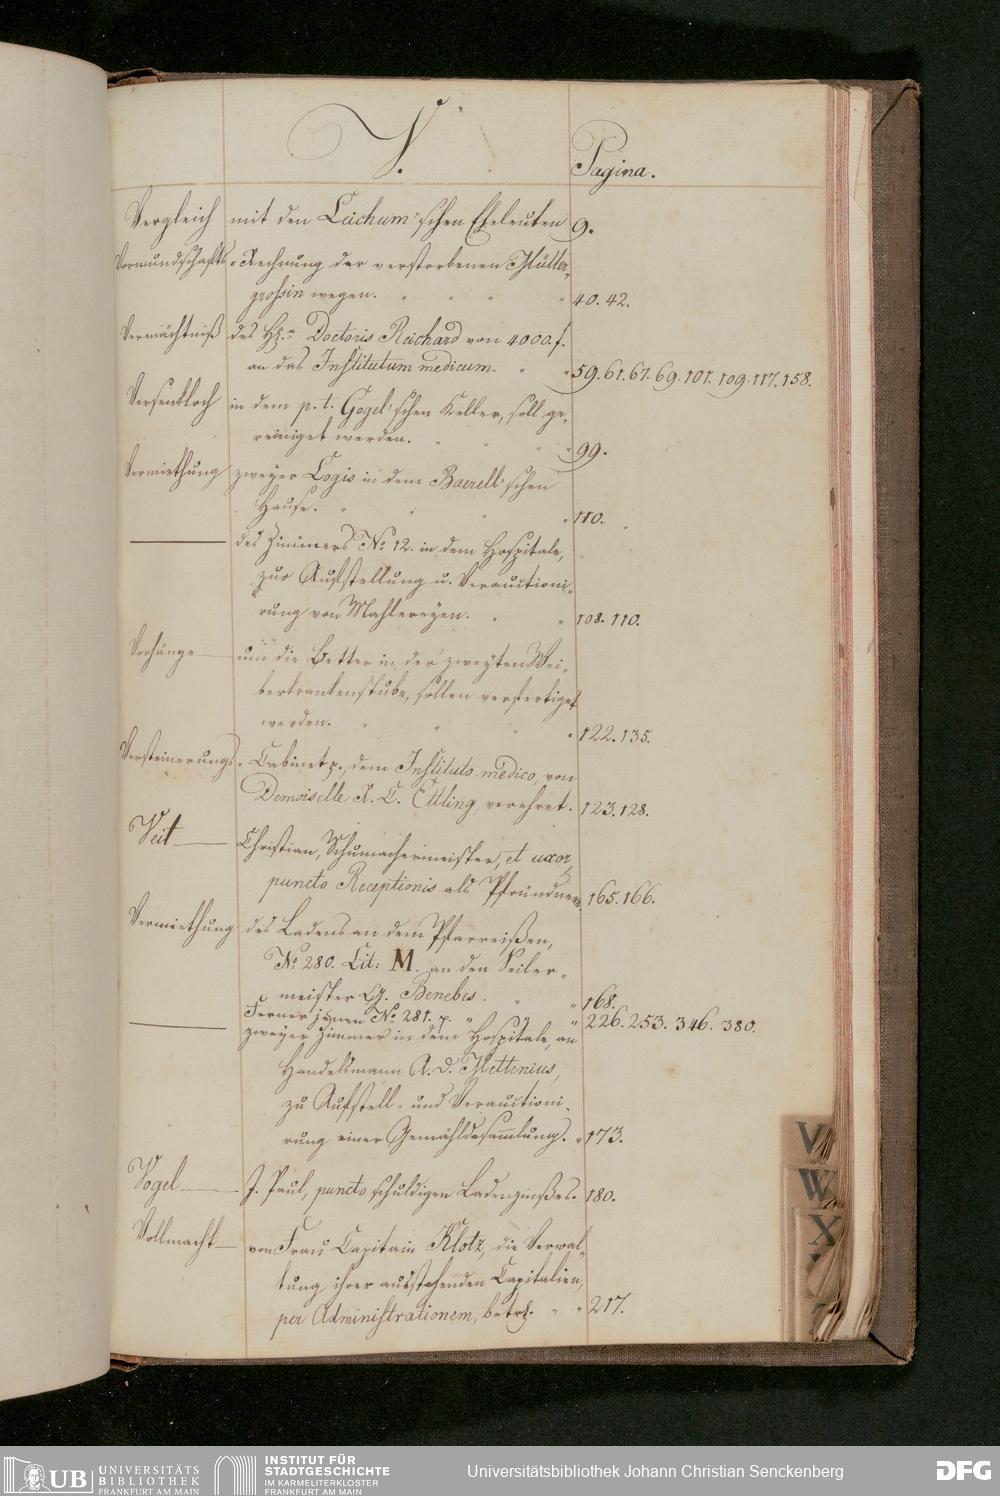 V.
Pagina.
Vergleich mit den Leichum'schen Eheleuten 9.
Vormundschafts- Rechnung der verstorbenen Müller-
großin wegen. " " " " 40. 42.
Vermächtniß des H. Doctoris Reichard von 4000 f.
an das Institutum medicum. " " 59. 61. 67. 69. 101. 109. 117. 158.
Versenkloch in dem p. t. Gogel'schen Keller, soll ge-
reiniget werden. " " " 99.
Vermiethung zweyer Logis in dem Baerell'schen
Hause. " " " " 110.
——— des Zimmers No 12. in dem Hospitale,
zur Aufstellung u. Verauctioni-
rung von Mahlereyen. " " 108. 110.
Vorhänge — um die Better in der zweyten Wei-
berkrankenstube, sollen verfertiget
werden. " " " 122. 135.
Versteinerungs- Cabinet p., dem Instituto medico, von
Demoiselle R. C. Ettling, verehret. 123. 128.
Veit — Christian, Schumachermeister, et uxor
puncto Receptionis als Pfründner. 165. 166.
Vermiethung des Ladens an dem Pfarreißen,
No 280. Lit: M. an den Seiler-
meister G. Benebes. " " 168.
Ferner jenen No 281. p. " " " 226. 253. 346. 380.
——— zweyer Zimmer in dem Hospitale, an
Handelsmann A. D. Mettenius,
zu Aufstell- und Verauctioni-
rung einer Gemähldesammlung. " 173.
Vogel — J. Paul, puncto schuldigen Ladenzinßes. 180.
Vollmacht — von Frau Capitain Klotz, die Verwal-
tung ihrer ausstehenden Capitalien,
per Administrationem, betr. " " 217.
V
W
X
UB UNIVERSITÄTS
BIBLIOTHEK
FRANKFURT AM MAIN
INSTITUT FÜR
STADTGESCHICHTE
IM KARMELITERKLOSTER
FRANKFURT AM MAIN
Universitätsbibliothek Johann Christian Senckenberg
DFG